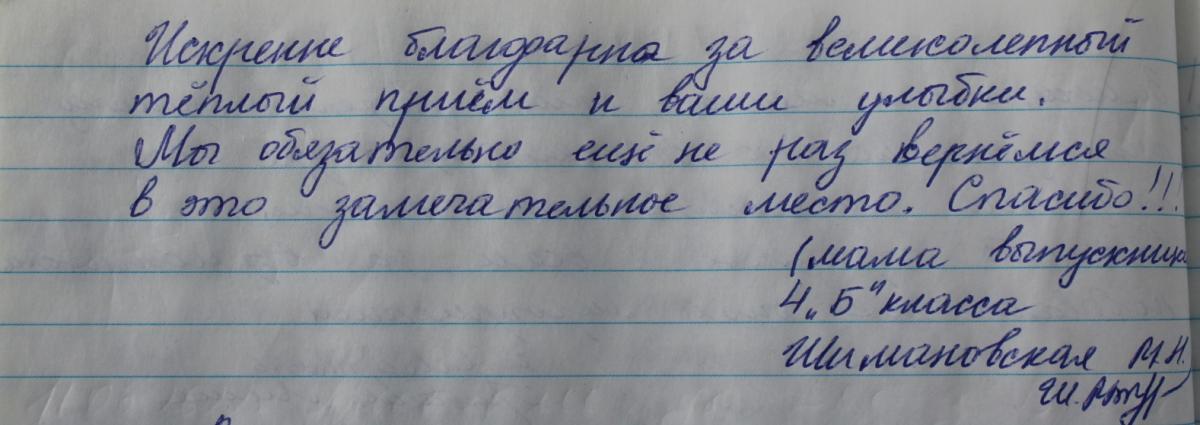 Искренне благодарна за великолепный
тёплый приём и ваши улыбки.
Мы обязательно ещё не раз вернёмся
в это замечательное место. Спасибо!!!
(мама выпускника
4 „Б" класса
Шимановская М.Н.